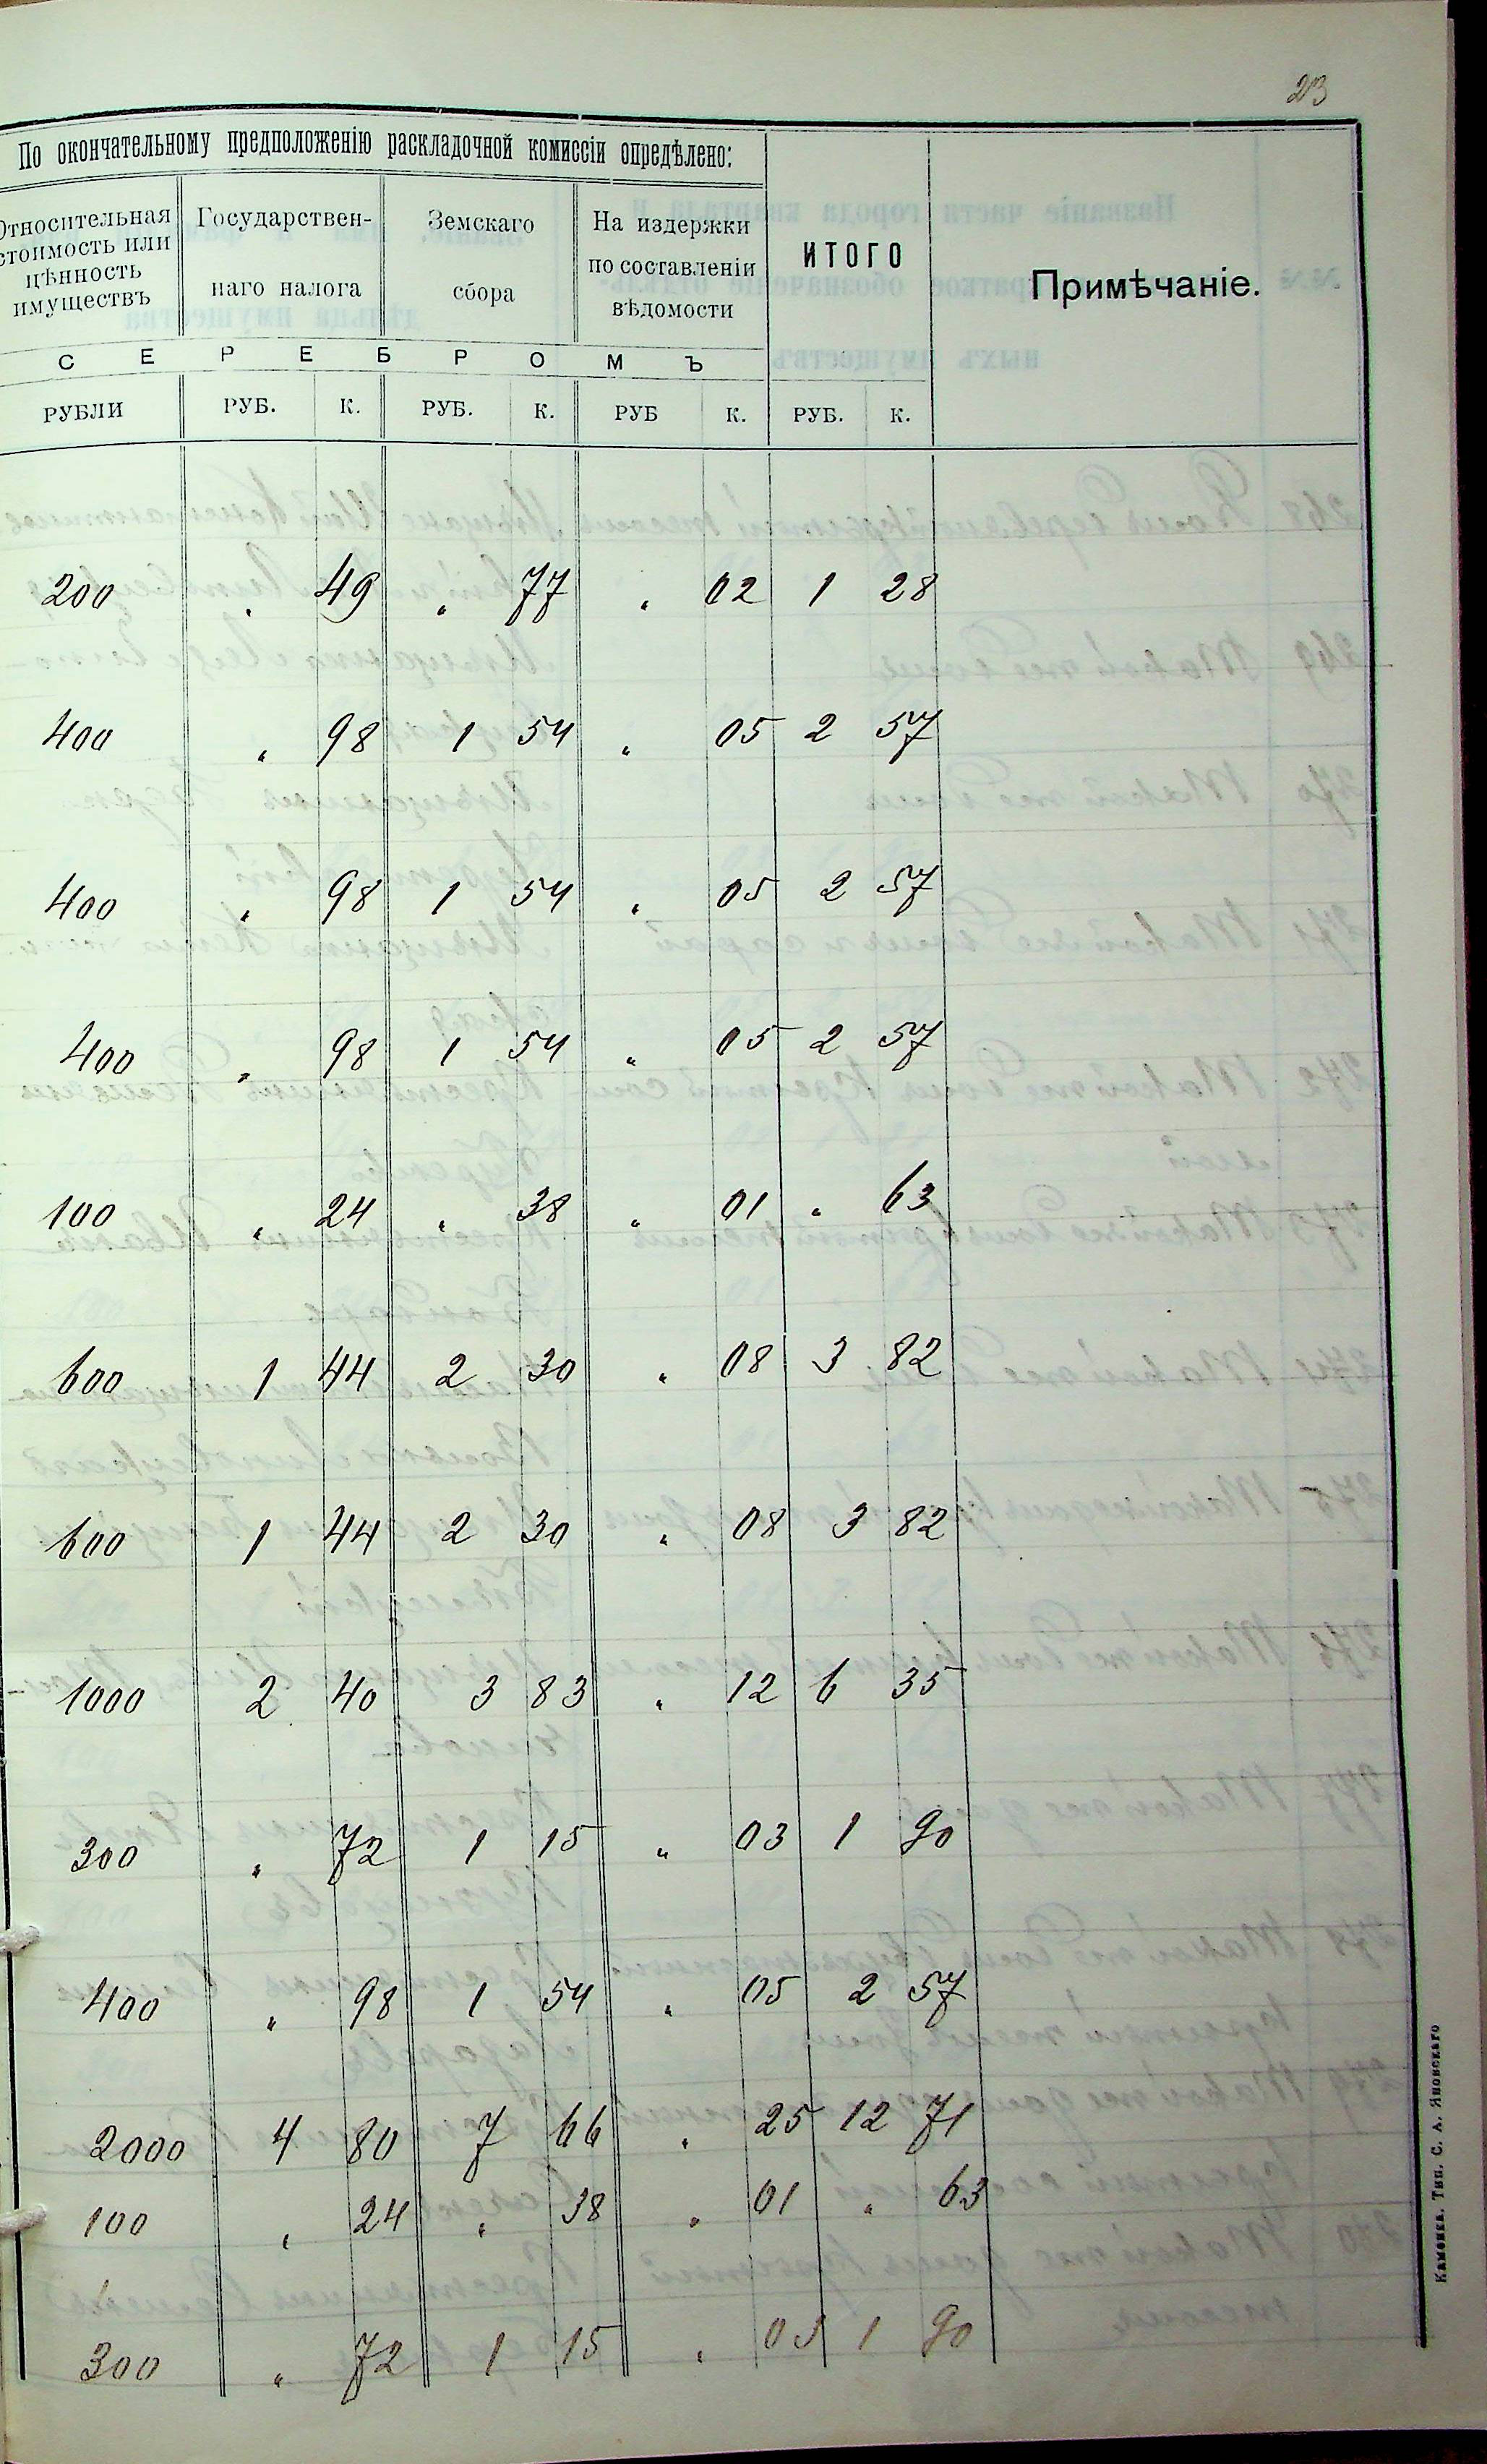 23
По окончательному предположенію раскладочной комиссіи опредѣлено:
Относительная стоимость или цѣнность имуществъ
Государствен-наго налога
Земскаго сбора
На издержки по составленіи вѣдомости
ИТОГО
Примѣчаніе.
С Е Р Е Б Р О М Ъ
РУБЛИ РУБ. К. РУБ. К. РУБ К. РУБ. К.
200 „ 49 „ 77 „ 02 1 28
400 „ 98 1 54 „ 05 2 57
400 „ 98 1 54 „ 05 2 57
400 „ 98 1 54 „ 05 2 57
100 „ 24 „ 38 „ 01 „ 63
600 1 44 2 30 „ 08 3 82
600 1 44 2 30 „ 08 3 82
1000 2 40 3 83 „ 12 6 35
300 „ 72 1 15 „ 03 1 90
400 „ 98 1 54 „ 05 2 57
2000 4 80 7 66 „ 25 12 71
100 „ 24 „ 38 „ 01 „ 63
300 „ 72 1 15 „ 03 1 90
Каменка. Тип. С. А. Яновскаго